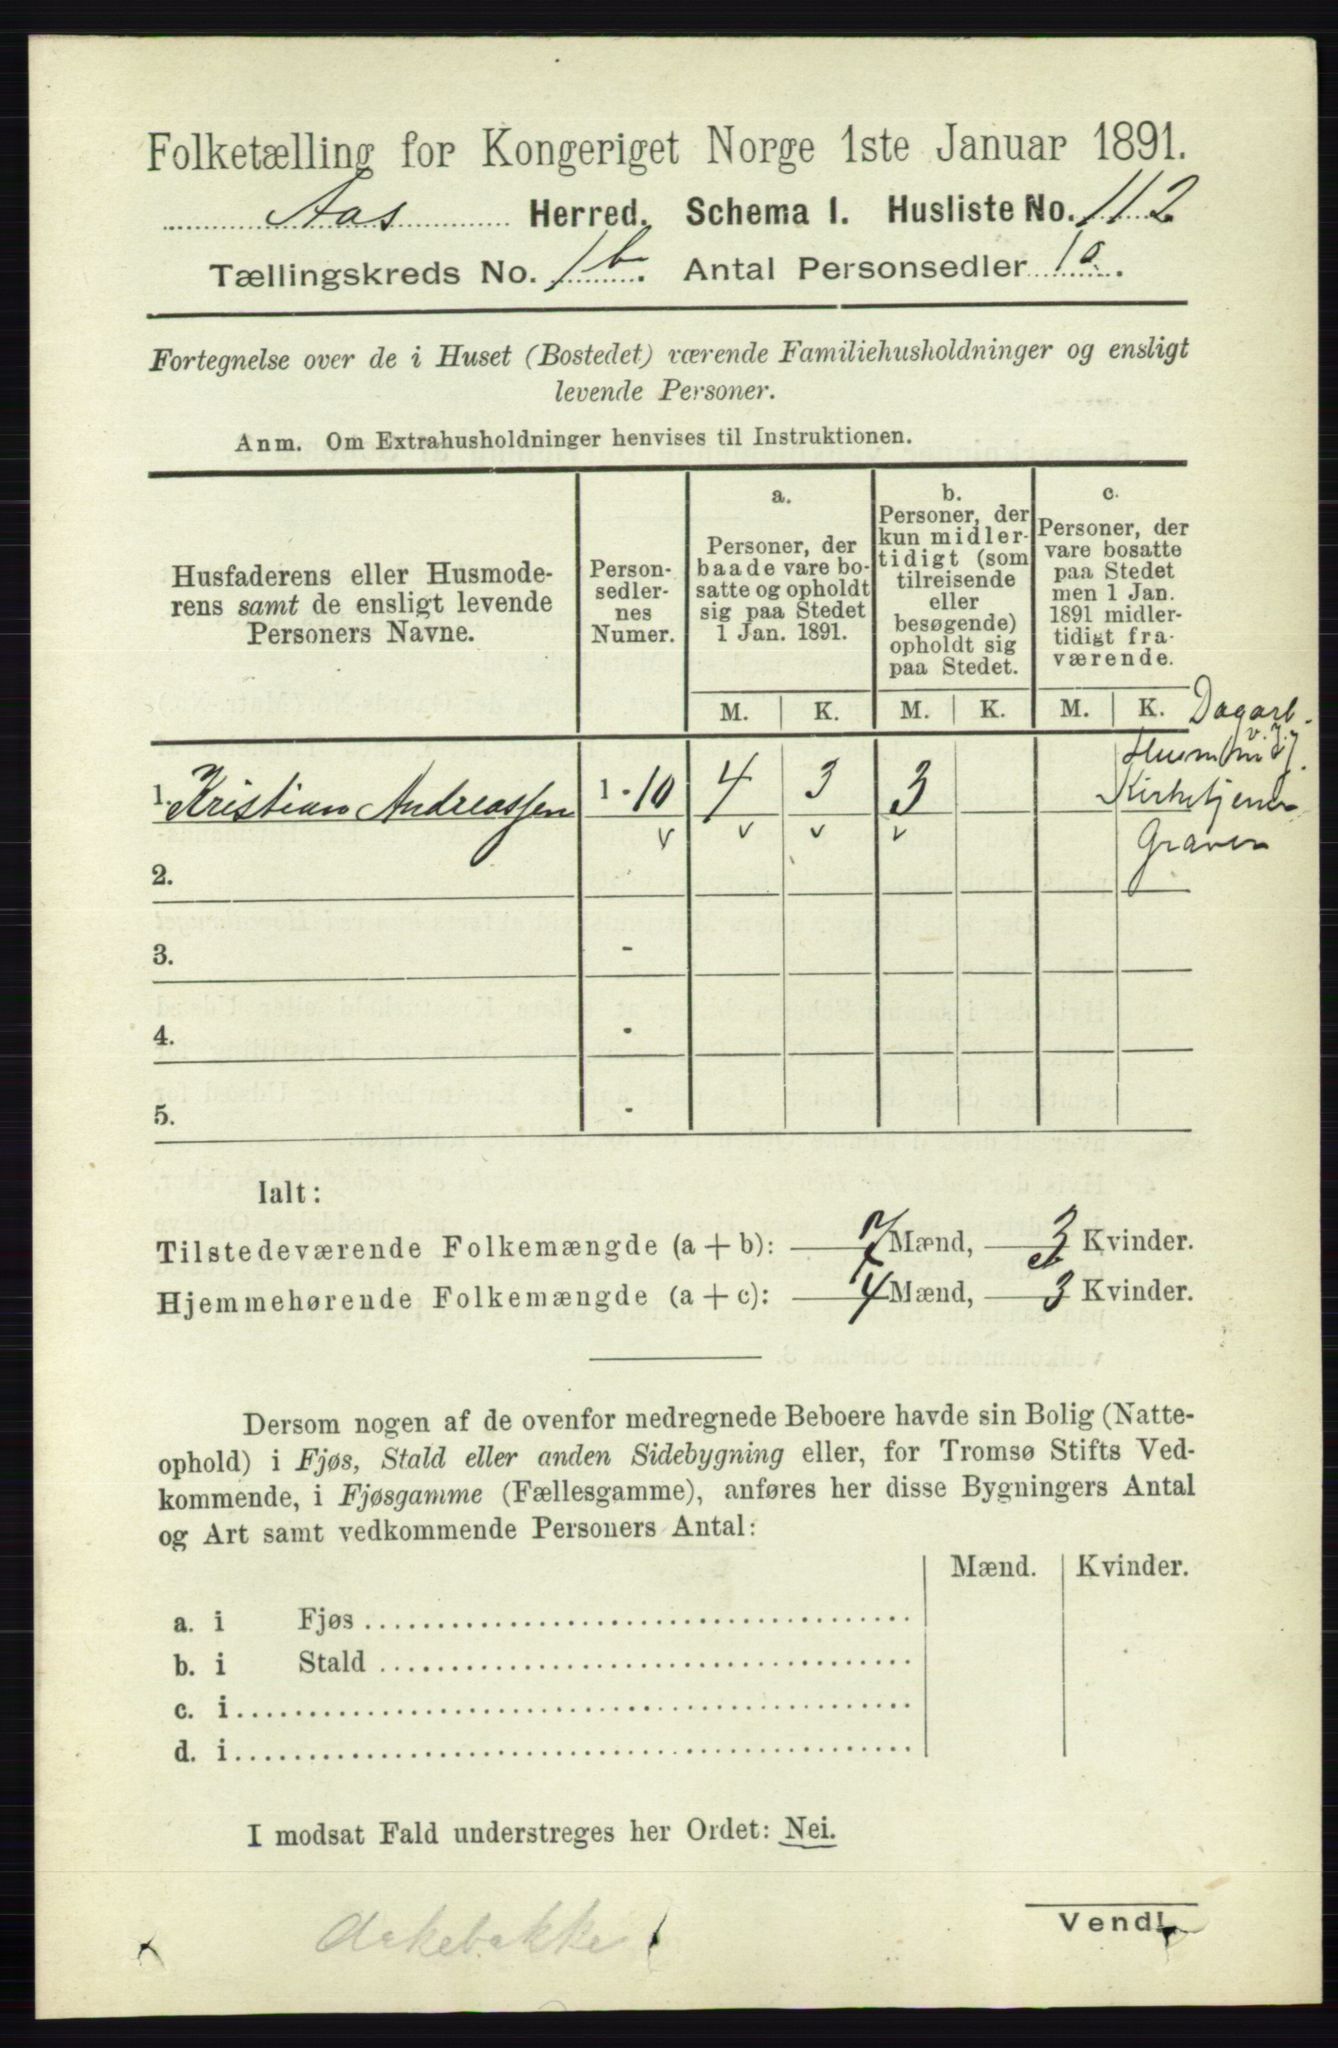 Folketælling for Kongeriget Norge 1ste Januar 1891.
Aas Herred. Schema I. Husliste No. 112
Tællingskreds No. 1b. Antal Personsedler 10.
Fortegnelse over de i Huset (Bostedet) værende Familiehusholdninger og ensligt
levende Personer.
Anm. Om Extrahusholdninger henvises til Instruktionen.
Husfaderens eller Husmode-
rens samt de ensligt levende
Personers Navne.
Person-
sedler-
nes
Numer.
a.
Personer, der
baade vare bo-
satte og opholdt
sig paa Stedet
1 Jan. 1891.
b.
Personer, der
kun midler-
tidigt (som
tilreisende
eller
besøgende)
opholdt sig
paa Stedet.
c.
Personer, der
vare bosatte
paa Stedet
men 1 Jan.
1891 midler-
tidigt fra-
værende.
M. K. M. K. M. K. Dagarb.
v. J.
1. Kristian Andreassen 1 - 10 4 3 3
Kirketjener
v v v v
Graver
2.
3. -
4. -
5. -
Ialt:
Tilstedeværende Folkemængde (a + b): 7 Mænd, 3 Kvinder.
Hjemmehørende Folkemængde (a + c): 4 Mænd, 3 Kvinder.
Dersom nogen af de ovenfor medregnede Beboere havde sin Bolig (Natte-
ophold) i Fjøs, Stald eller anden Sidebygning eller, for Tromsø Stifts Ved-
kommende, i Fjøsgamme (Fællesgamme), anføres her disse Bygningers Antal
og Art samt vedkommende Personers Antal:
Mænd. Kvinder.
a. i Fjøs
b. i Stald
c. i
d. i
I modsat Fald understreges her Ordet: Nei.
Vend!